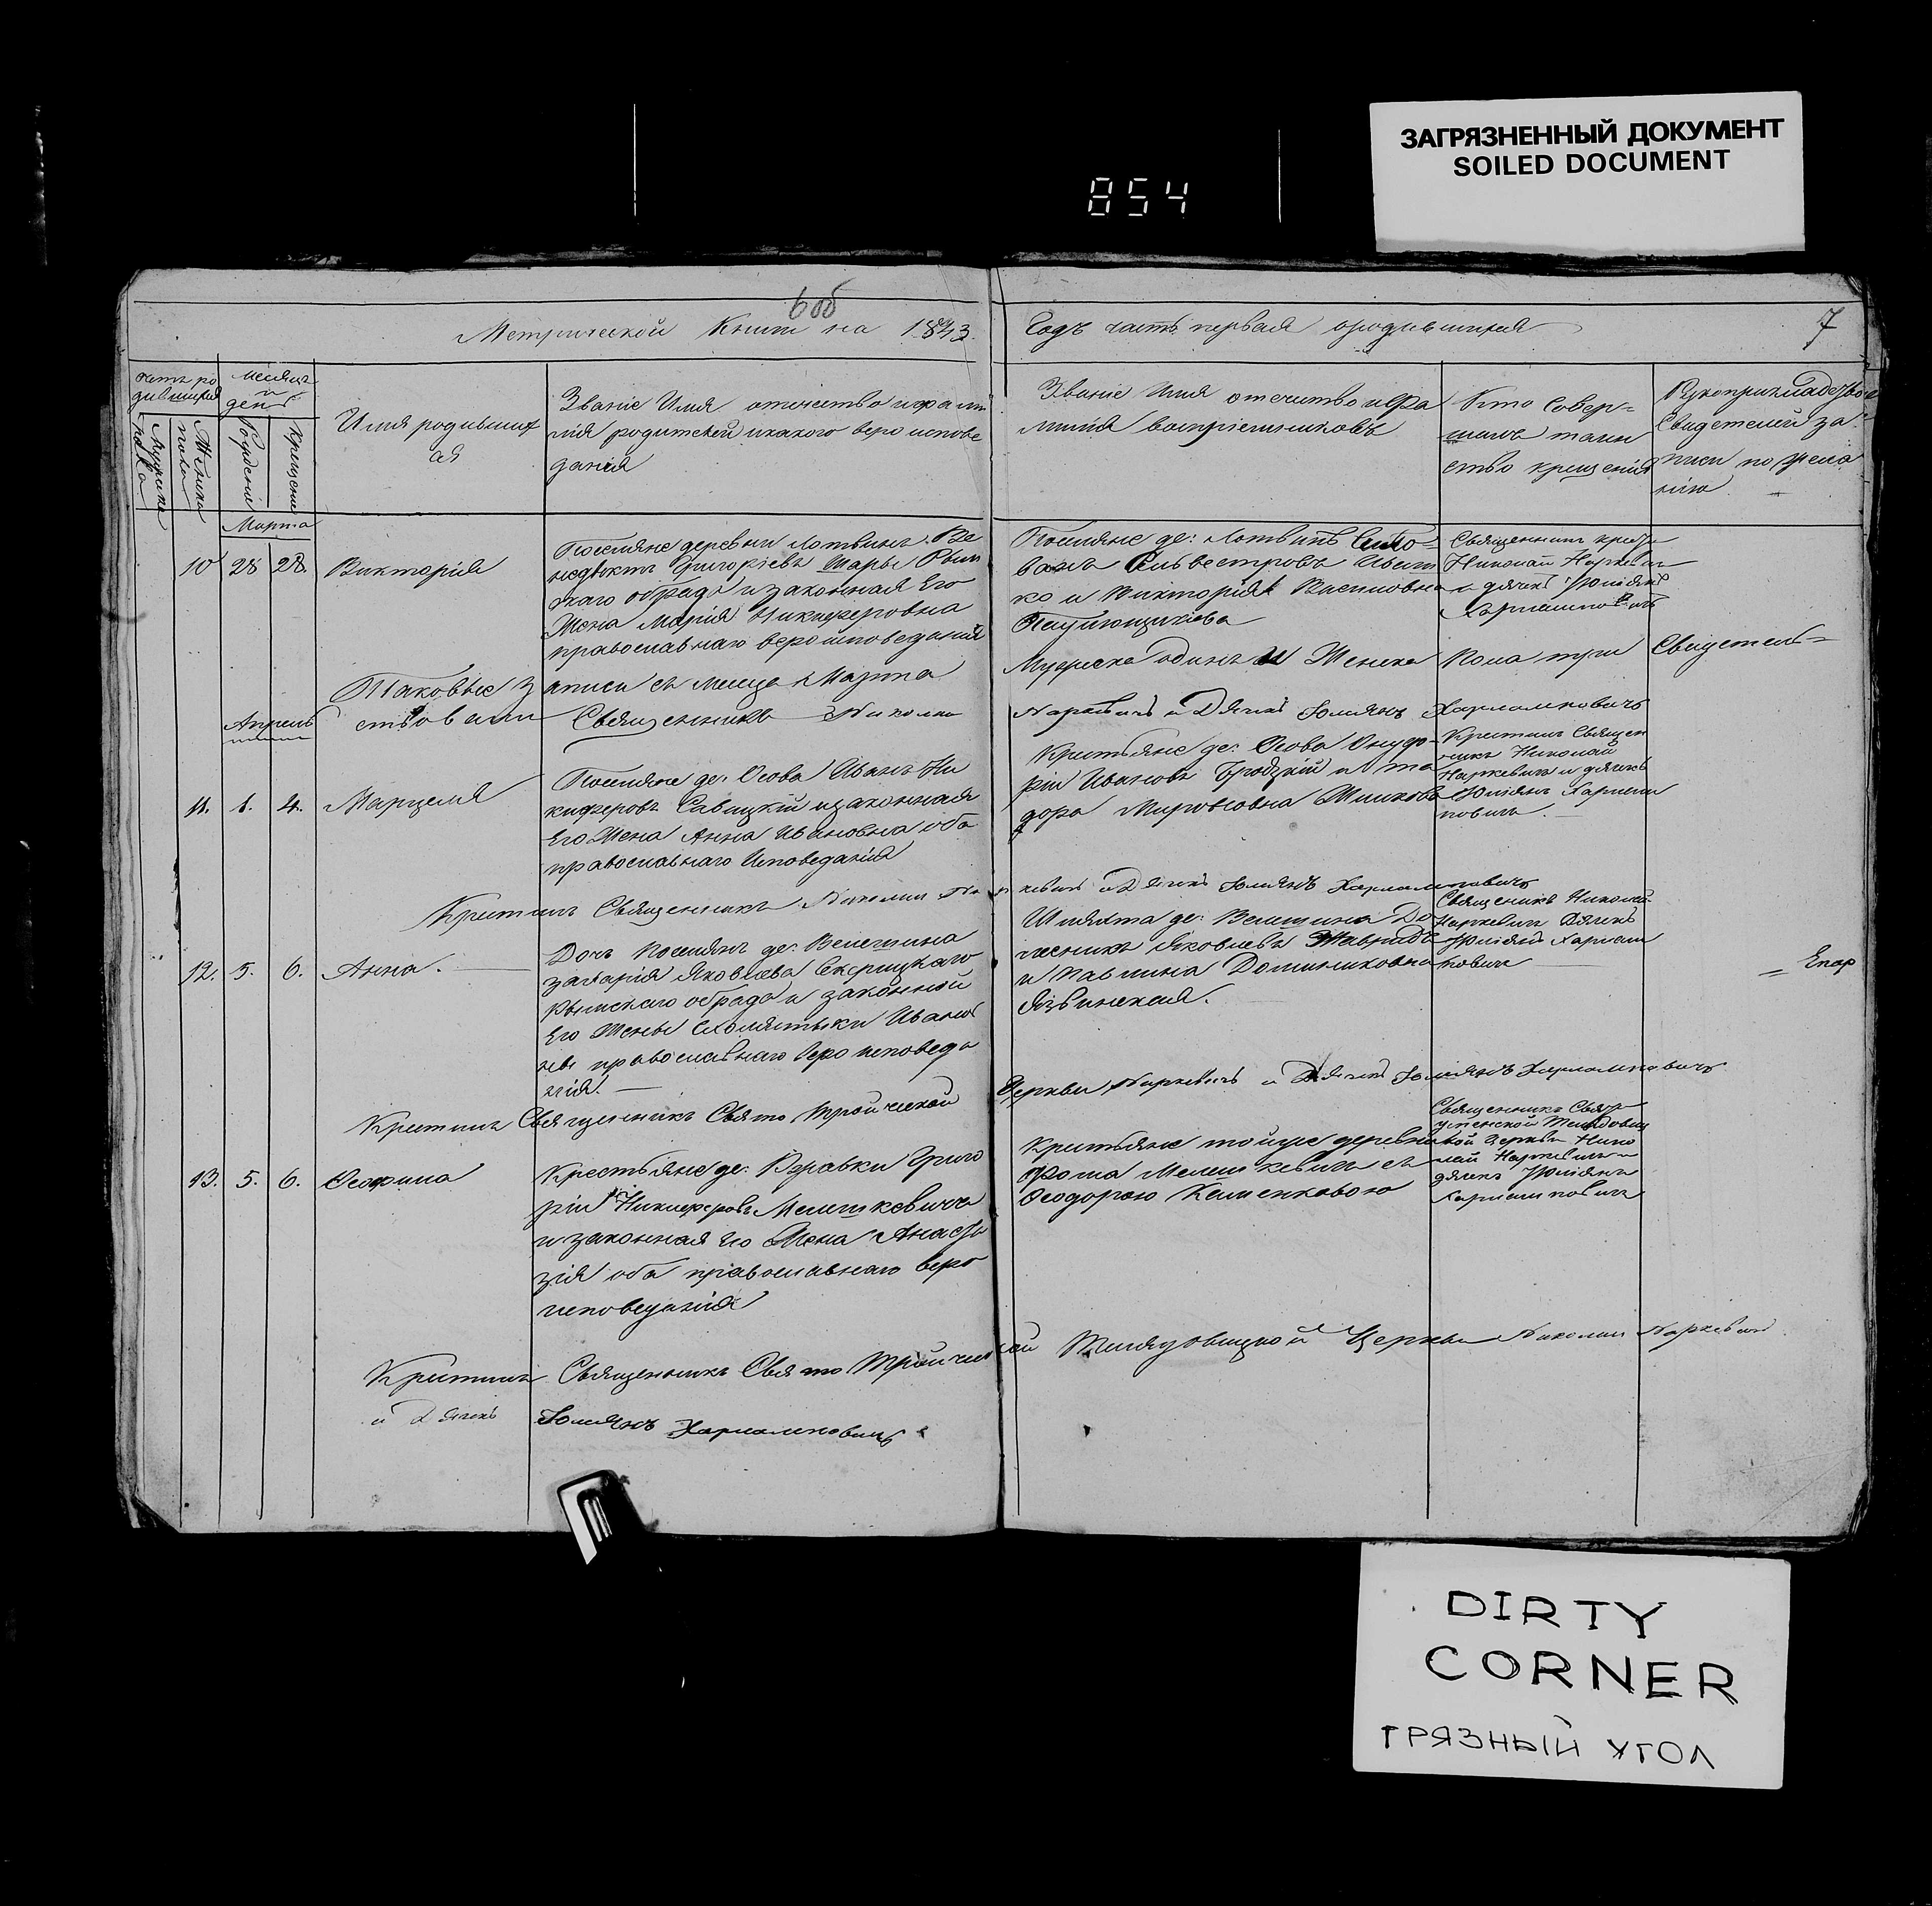 ЗАГРЯЗНЕННЫЙ ДОКУМЕНТ
SOILED DOCUMENT
854
6 об
Метрической Книги на 1843.
Годъ часть первая о родившихся
7
Месяцъ
и
день
Мужеска
пола
Женска
пола
Рождение
Крещение
Имя родивших
ся
Званіе Имя отечество и фами
лія родителей и какого веро испове
данія
Званіе Имя отечество и Фа
милія воспріемниковъ
Кто Совер=
шалъ таин
ство крещенія
Свидетелей за
писи по жела
нію
Марта
10 28 28. Викторія
Поселяне деревни Лотвинъ Ве
недыктъ Григоріевъ Шары Рым
скаго обряда и законная Его
Жена Марія Никифоровна
православнаго вероисповеданія
Поселяне де: Лотвинъ
Сильвестровъ
ко и Викторія Василовна
Священникъ
Николай Наркевич
и дячекъ Юліянъ
Харлампович
Таковые записи съ месеца Марта
Мужеска одинъ и Женска Пола три Свидетель=
ствовали Священникъ Николай
Наркевичъ и Дячекъ Юлиянъ Харламповичъ
Апрель
11. 1. 4. Марцеля
Поселяне де: Осова Иванъ Ни
кифоровъ Савицкій и законная
Его Жена Анна Ивановна оба
православнаго Исповеданія
Крестьяне де: Осова Онуф-
рій Ивановъ Бродзкій и
дора Мироновна
Крестилъ Священ
никъ Николай
Наркевичъ и дячекъ
Юліянъ Харлам
повичъ.
Крестилъ Священникъ Николай Наркевичъ и Дячекъ Юлиянъ Харламповичъ
12. 5. 6. Анна.
Дочь Поселянъ де: Велешина
Захарія Яковлева
Рымскаго обряда и законной
Его Жены Иванов
ны православнаго Вероисповеда
нія.
Шляхта де: Велешина До
Яковлевъ
и Павлина Доминиковна
Язвинская.
Священникъ Николай
Наркевичъ Дячекъ
Юліянъ Харлам
повичъ
= Епар
Крестилъ Священникъ Свято Троической
Церкви Наркевичъ и Дячекъ Юлиянъ Харламповичъ
13. 5. 6.
Крестьяне де: Григо
рій Никифоровъ Мелешкевичъ
и законная его Жена Анаста
зія оба православнаго веро
исповеданія
Крестьяне тойже деревни
Фома Мелешкевичъ съ
Феодорою
Священникъ Свято
кой Церкви Нико
лай Наркевичъ и
дячекъ Юліянъ
Харламповичъ
Крестилъ Священникъ Свято Троической Церкви Николай Наркевичъ
и Дячекъ Юлиянъ Харламповичъ
DIRTY
CORNER
ГРЯЗНЫЙ УГОЛ